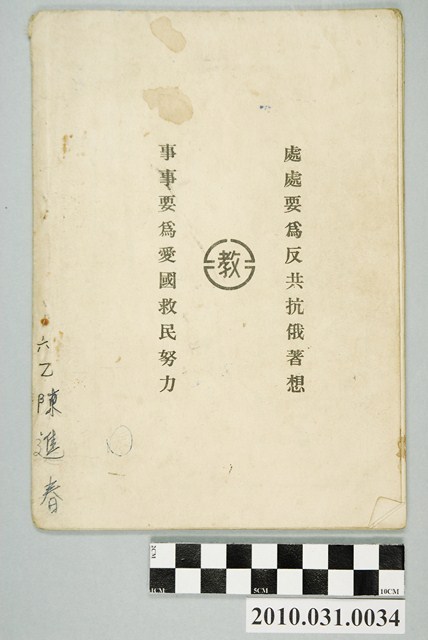 處處要為反共抗俄著想
教
事事要為愛國救民努力
六乙陳進春
2CM
1CM
5CM
10CM
2010.031.0034